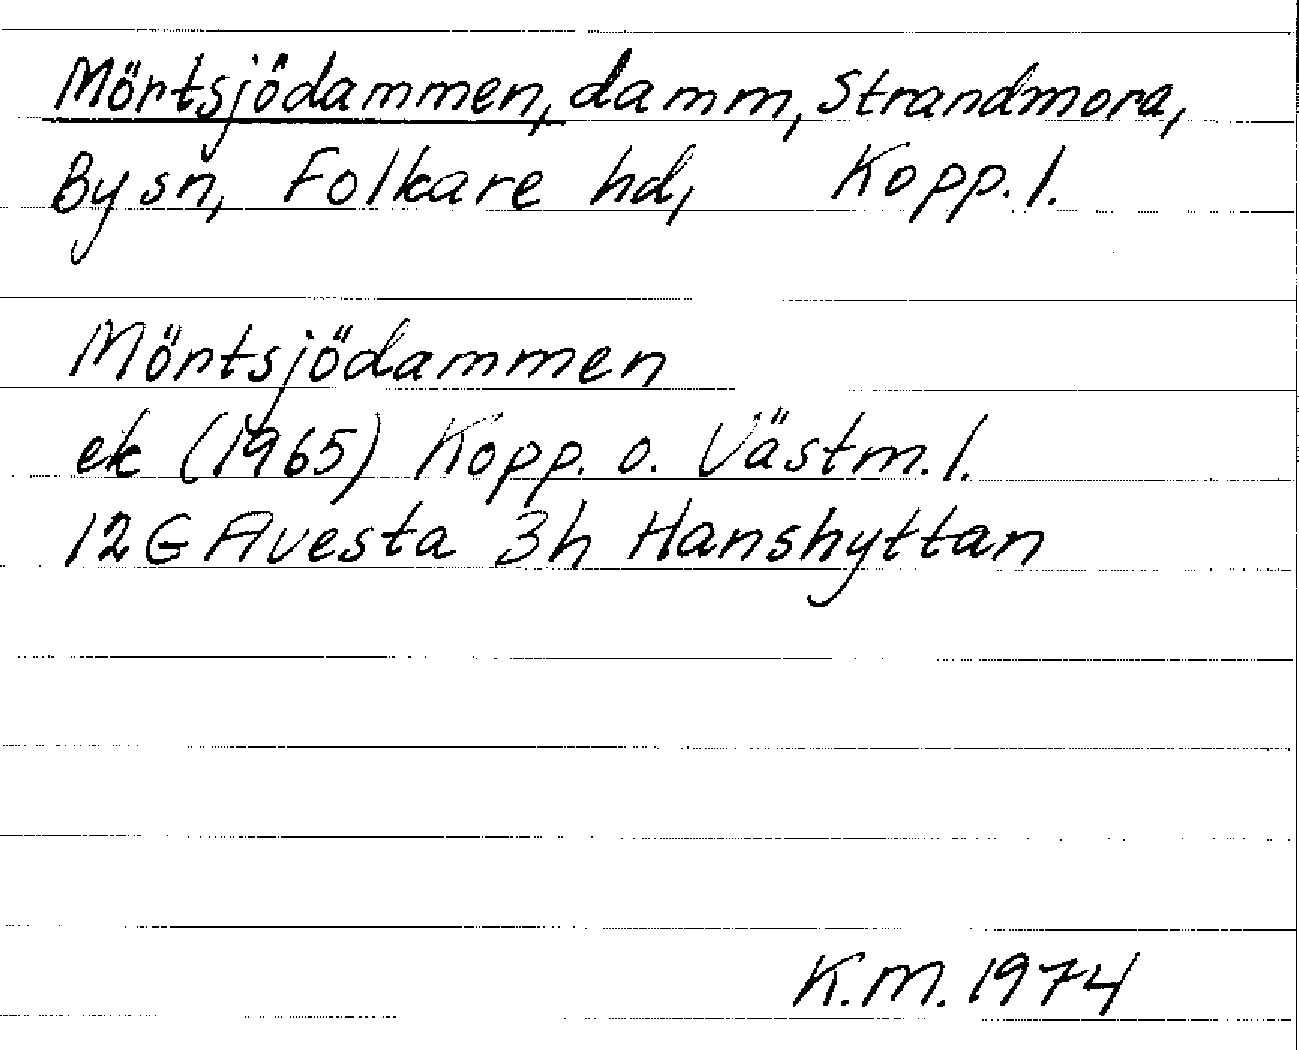 Mörtsjödammen, damm, Strandmora,
By sn, Folkare hd, Kopp. l.
Mörtsjödammen
ek (1965) Kopp. o. Västm. l.
12G Avesta 3h Hanshyttan
K.M. 1974